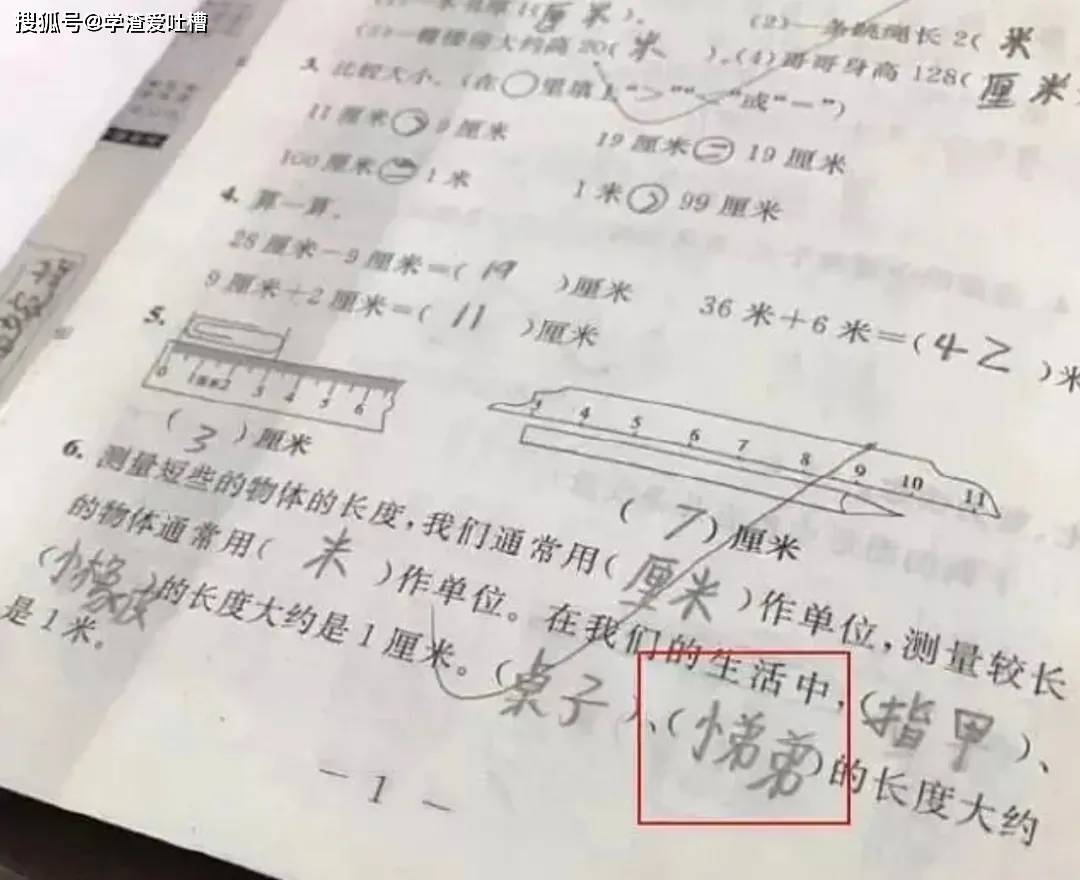 搜狐号@学渣爱吐槽
厘米)。 (2)一条跳绳长2(米
(3)一棵楼房大约高20(米)。(4)哥哥身高128(厘米
3. 比较大小。(在○里填上“>”“<”或“=”)
11厘米>9厘米 19厘米=19厘米
100厘米=1米 1米>99厘米
4. 算一算。
28厘米-9厘米=(19)厘米 36米+6米=(42)米
9厘米+2厘米=(11)厘米
5.
0 1厘米2 3 4 5 6
3 4 5 6 7 8 9 10 11
(3)厘米 (7)厘米
6. 测量短些的物体的长度,我们通常用(厘米)作单位,测量较长
的物体通常用(米)作单位。在我们的生活中,(指甲)、
(小橡皮)的长度大约是1厘米。(桌子)、(小弟弟)的长度大约
是1米。
— 1 —